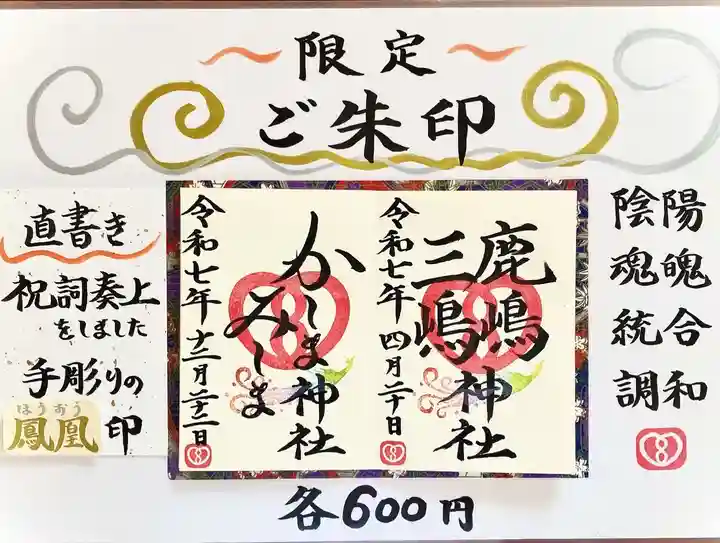 限定
ご朱印
陰陽
魂魄
統合
調和
令和七年 四月二十日
鹿嶋
三嶋
神社
令和七年 十二月二十二日
かしま
みしま
神社
直書き
祝詞奏上
をしました
手彫りの
ほうおう
鳳凰印
各600円